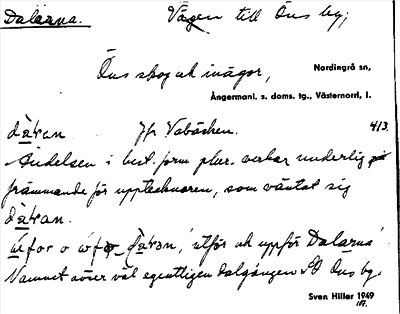 Dalarna. Vägen till Öns by;
Öns skog och inägor, Nordingrå sn,
Ångermanl. s. doms. tg., Västernorrl, l.
Jfr Vabäcken. 4/3.
Ändelsen i best. form plur. verkar underlig
främmande för upptecknaren, som väntat sig
utför och uppför Dalarna.
Namnet avser väl egentligen dalgången SO Öns by.
Sven Hiller 1949